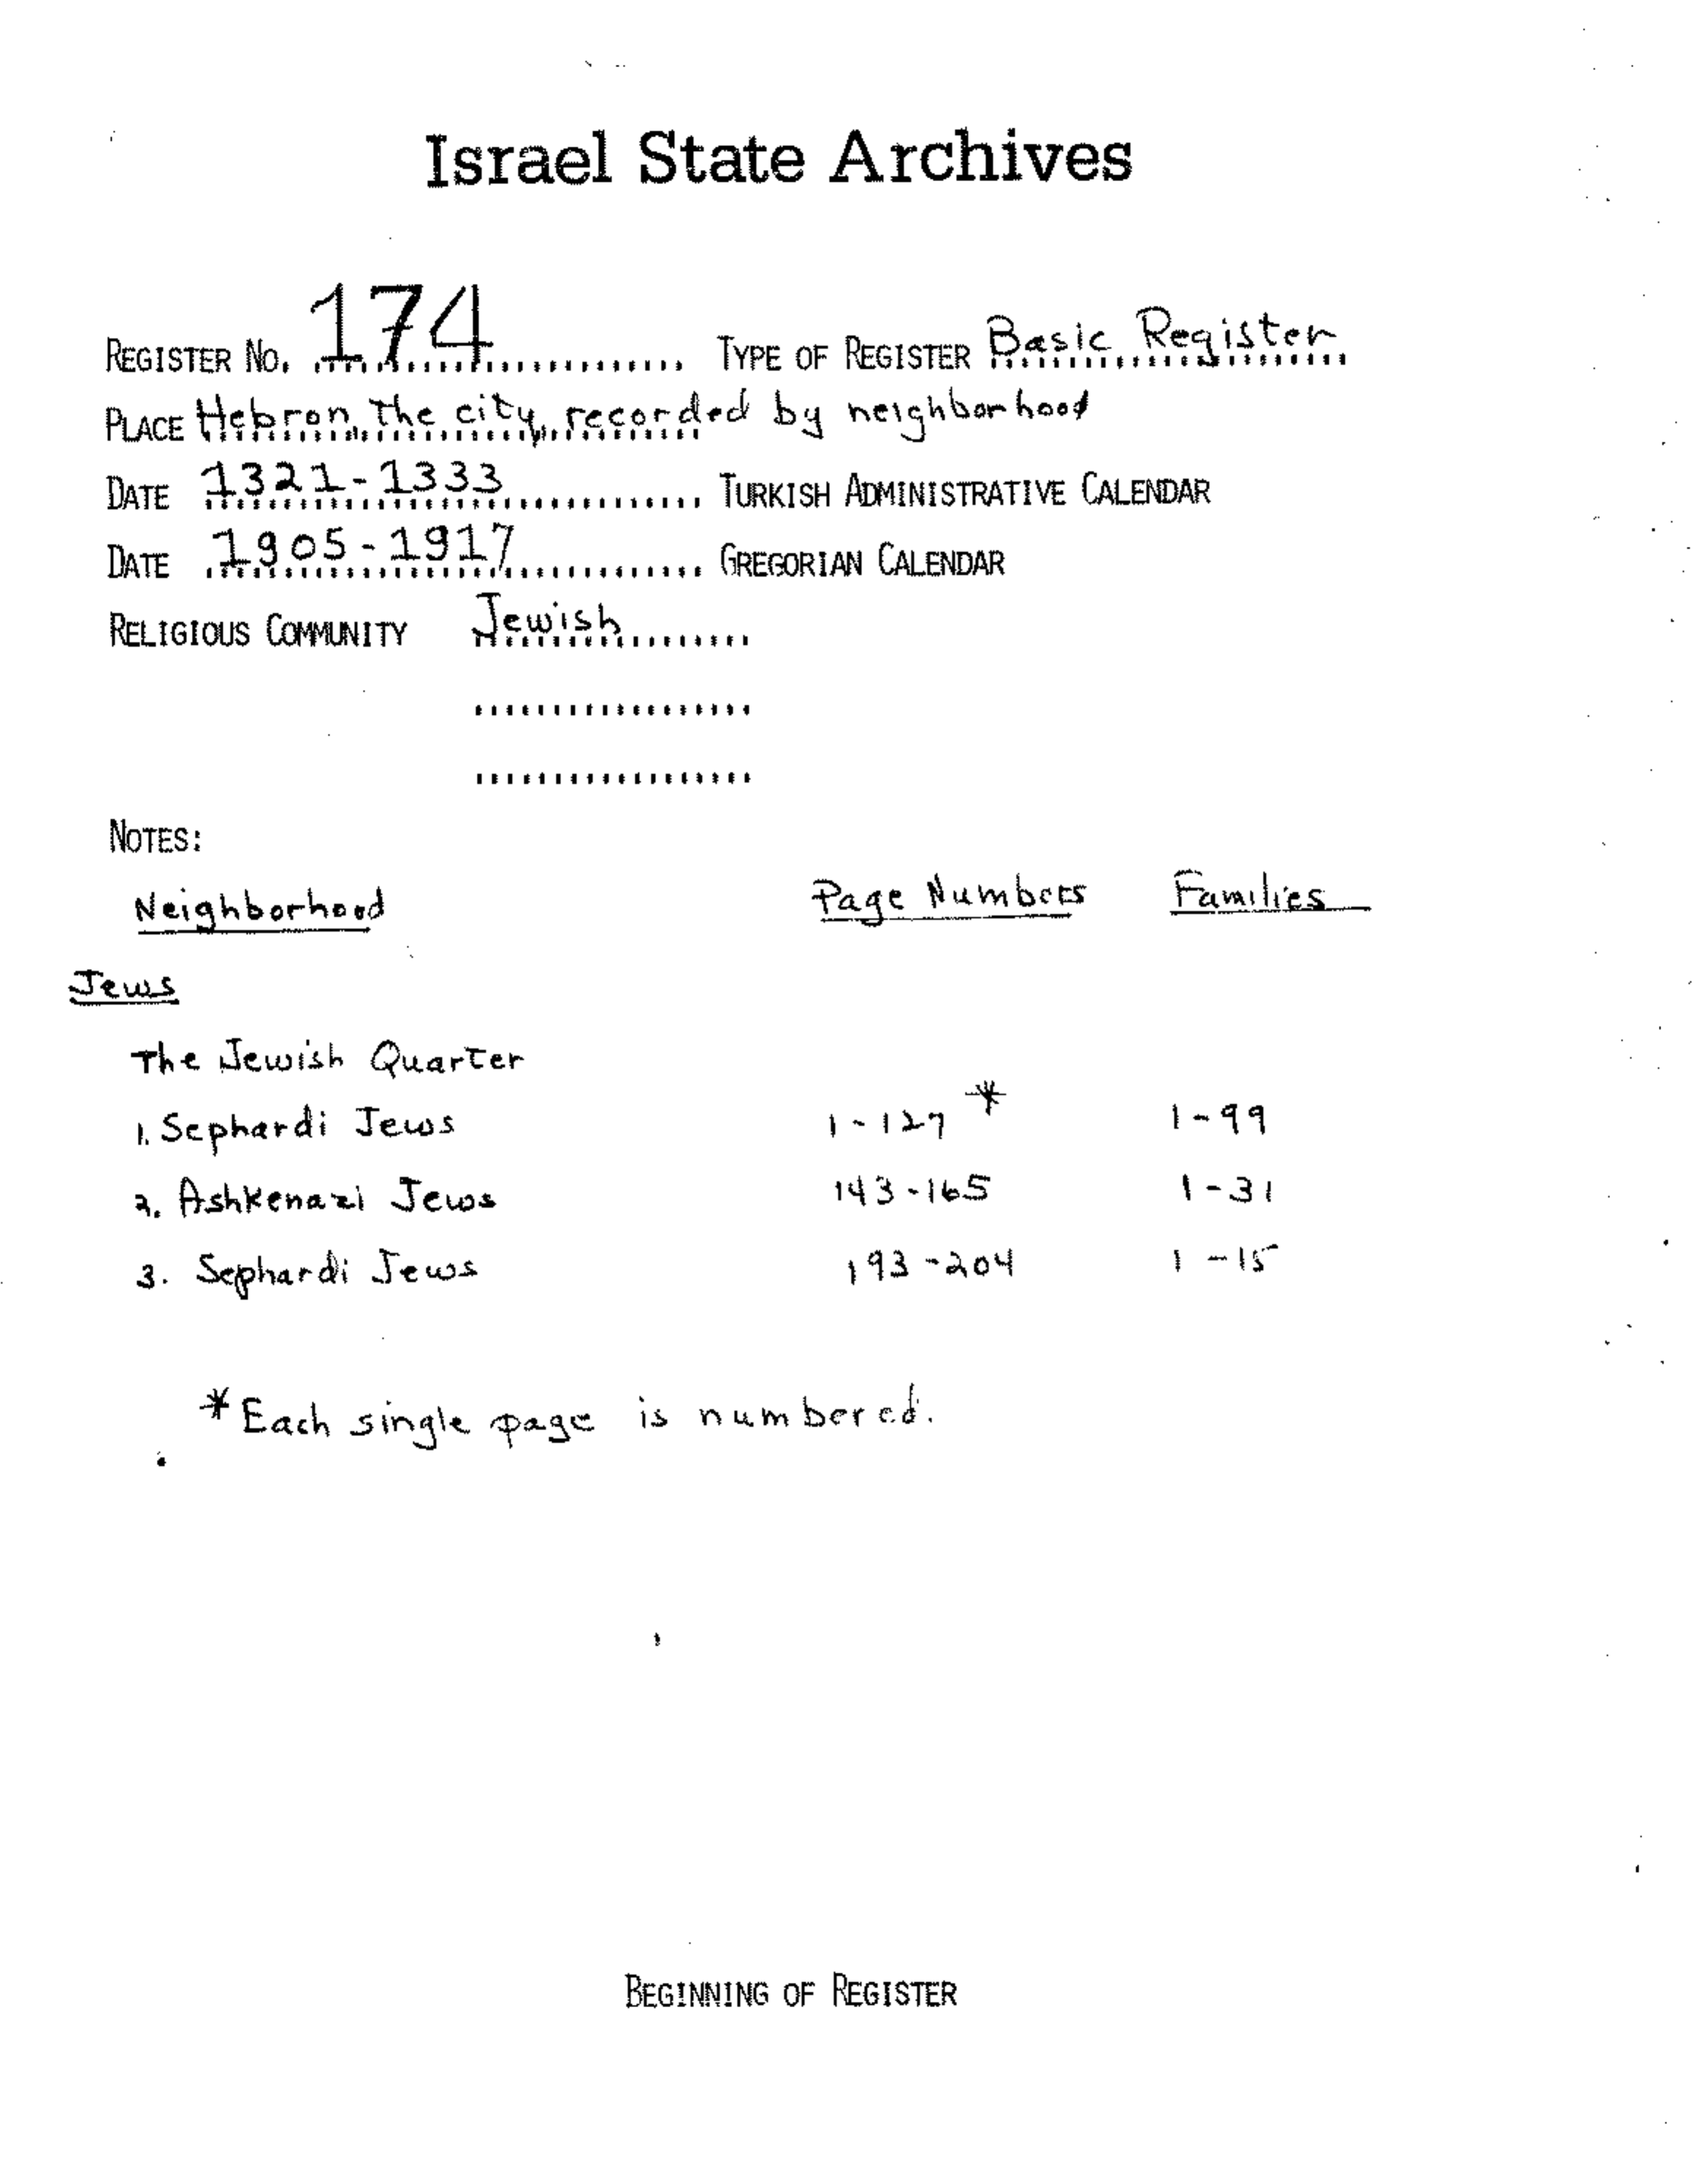 Israel State Archives
REGISTER NO. 174 TYPE OF REGISTER Basic Register
PLACE Hebron, the city, recorded by neighborhood
DATE 1321-1333 TURKISH ADMINISTRATIVE CALENDAR
DATE 1905-1917 GREGORIAN CALENDAR
RELIGIOUS COMMUNITY Jewish
NOTES:
Neighborhood Page Numbers Families
Jews
The Jewish Quarter
1. Sephardi Jews 1-127 * 1-99
2. Ashkenazi Jews 143-165 1-31
3. Sephardi Jews 193-204 1-15
* Each single page is numbered.
BEGINNING OF REGISTER